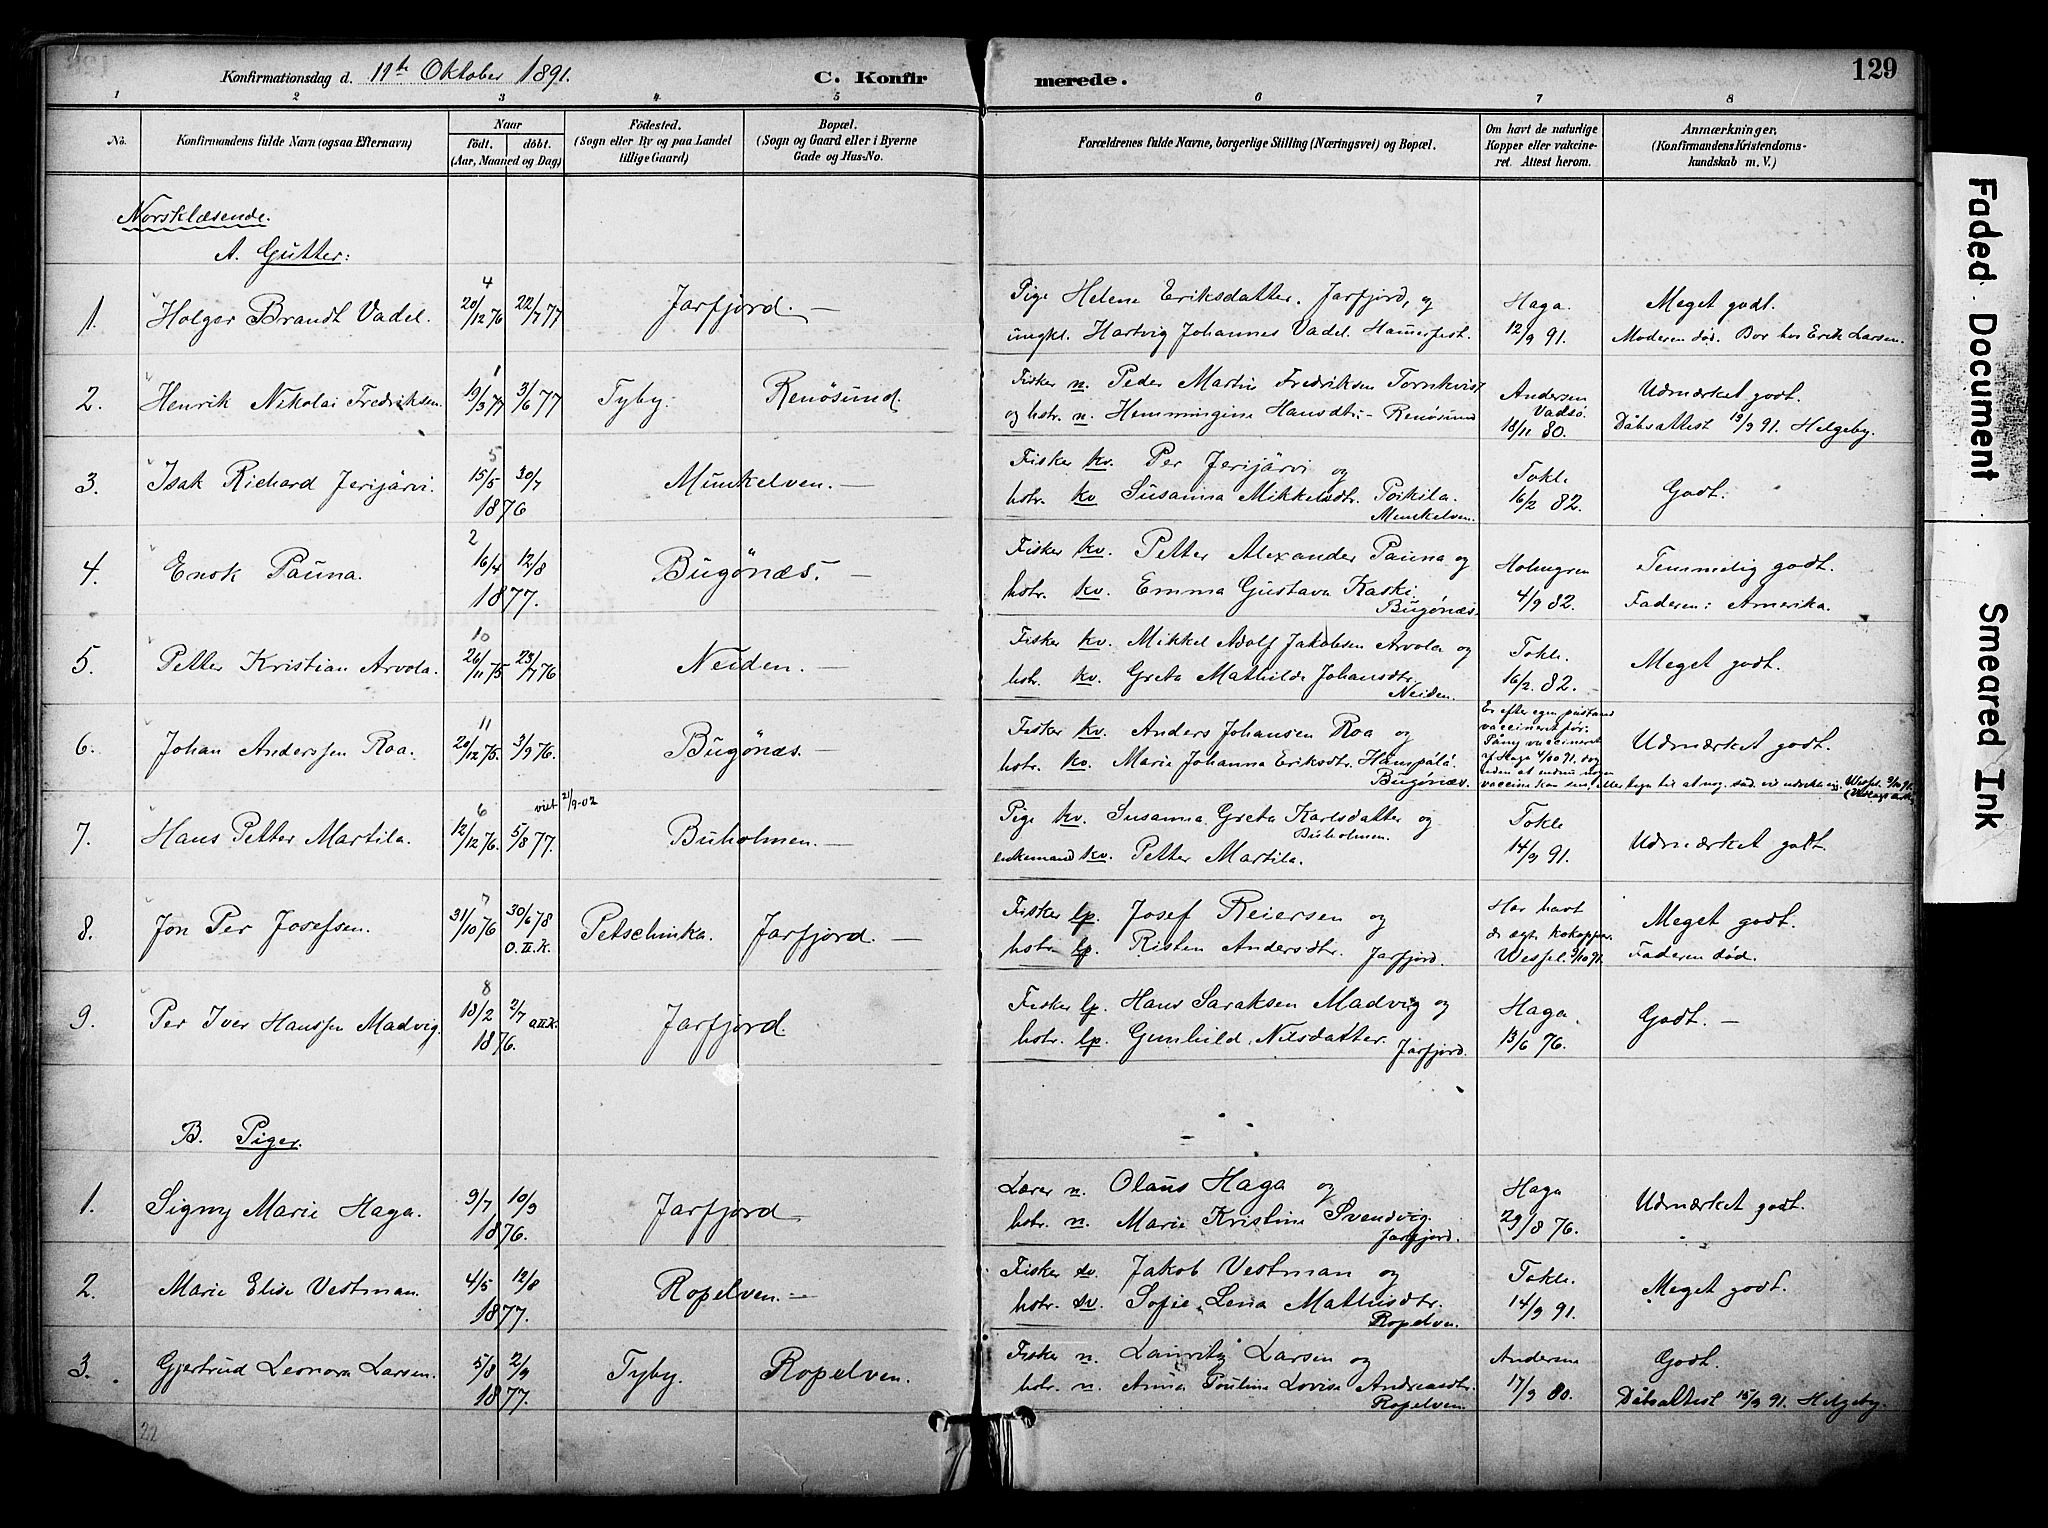 Konfirmationsdag d. 11te Oktober 1891.
C. Konfir
merede.
129
1 2 3 4 5 6 7 8
No.
Konfirmandens fulde Navn (ogsaa Efternavn)
Naar
født.
døbt.
(Aar, Maaned og Dag)
Fødested.
(Sogn eller By og paa Landet
tillige Gaard)
Bopæl.
(Sogn og Gaard eller i Byerne
Gade og Hus-No.
Forældrenes fulde Navne, borgerlige Stilling (Næringsvei) og Bopæl.
Om havt de naturlige
Kopper eller vakcine-
ret. Attest herom.
Anmærkninger,
(Konfirmandens Kristendoms-
kundskab m. V.)
Norsklæsende.
A. Gutter:
4
1. Holger Brandt Vadel. 20/12 76 22/7 77 Jarfjord. — Pige Helene Eriksdatter. Jarfjord, og Haga. Meget godt.
ungkl. Hartvig Johannes Vadel. Hamerfest. 12/9 91. Moderen död. Bor hos Erik Larsen.
1
2. Henrik Nikolai Fredriksen. 19/3 77 3/6 77 Tyby. Renösund. Fisker n. Peder Martin Fredriksen Tornkvist Andersen Vadsö. Udmærket godt.
og hstr. n. Hemmingine Hansdtr. – Renösund 18/11 80. Dåbsattest 19/9 91. Helgeby.
5
3. Isak Richard Jerijärvi. 15/5 30/7 Munkelven. — Fisker kv. Per Jerijärvi og Tokle Godt.
1876 hstr. kv Susanna Mikkelsdtr. Poikila. 16/2 82.
Munkelven.
2
4. Enok Pauna. 16/4 12/8 Bugönæs. — Fisker kv. Petter Alexander Pauna og Holmgren Temmelig godt.
1877. hstr. kv. Emma Gustava Kaski. 4/9 82. Faderen i Amerika.
Bugönæs.
10
5. Petter Kristian Arvola. 26/11 75 23/7 76 Neiden. — Fisker kv. Mikkel Adolf Jakobsen Arvola og Tokle. Meget godt.
hstr. kv. Greta Mathilde Johansdtr. 16/2. 82.
Neiden.
11
6. Johan Anderssen Roa. 20/12 75. 3/9 76. Bugönæs. — Fisker kv. Anders Johansen Roa og Er efter egen påstand Udmærket godt.
vaccineret för.
Påny vaccineret
hstr. kv. Marie Johanna Eriksdtr. Hampälä. af Haga 4/10 91. dog
Bugönæs. uden at endnu nogen
vaccine kan
6 viet 21/9-02
7. Hans Petter Martila. 12/12 76. 5/8 77. Buholmen. — Pige kv. Susanna Greta Karlsdatter og Tokle Udmærket godt.
Buholmen.
enkemand kv. Petter Martila. 14/9 91.
7
8. Jon Per Josefsen. 31/10 76 30/6 78 Petschinka. Jarfjord. — Fisker lp. Josef Reiersen og Har havt Meget godt.
O. II. K. de ægte kokopper.
hstr. lp. Risten Andersdtr. Jarfjord. Wessel. 9/10 91. Faderen död.
8
9. Per Iver Hanssen Madvig. 18/2 2/7 O.II.K. Jarfjord. Fisker lp. Hans Saraksen Madvig og Haga. Godt. —
1876. hstr. lp. Gunhild Nilsdatter. Jarfjord. 13/6 76.
B. Piger.
1. Signy Marie Haga. 9/7 10/9 Jarfjord — Lærer n. Olaus Haga og Haga Udmærket godt.
1876. hstr. n. Marie Kristine Svendvig. 29/8 76.
Jarfjord.
2. Marie Elise Vestman. 4/5 12/8 Ropelven. — Fisker sv. Jakob Vestman og Tokle. Meget godt.
1877. hstr. sv. Sofie Lena Mathisdtr. 14/9 91.
Ropelven.
3. Gjertrud Leonora Larsen. 5/8 2/9 Tyby. Ropelven. Fisker n. Lauritz Larsen og Andersen Godt.
1877. hstr. n. Anna Pouline Lovise Andreasdtr. 17/9 80. Dåbsattest 15/9 91. Helgeby.
Ropelven.
22
Faded Document
Smeared Ink